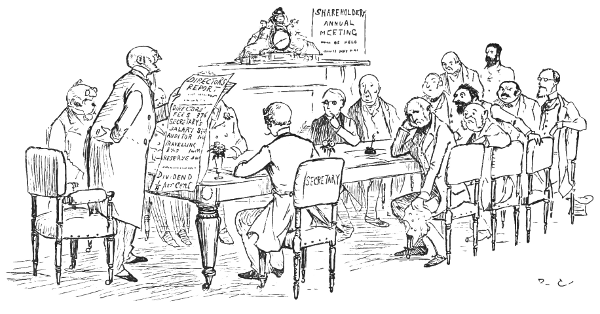 SHAREHOLDERS
ANNUAL
MEETING
DIRECTORS
REPORT
DIRECTORS'
FEES
SECRETARY'S
SALARY
AUDITOR
TRAVELLING
RESERVE
DIVIDEND
PER CENT
SECRETARY